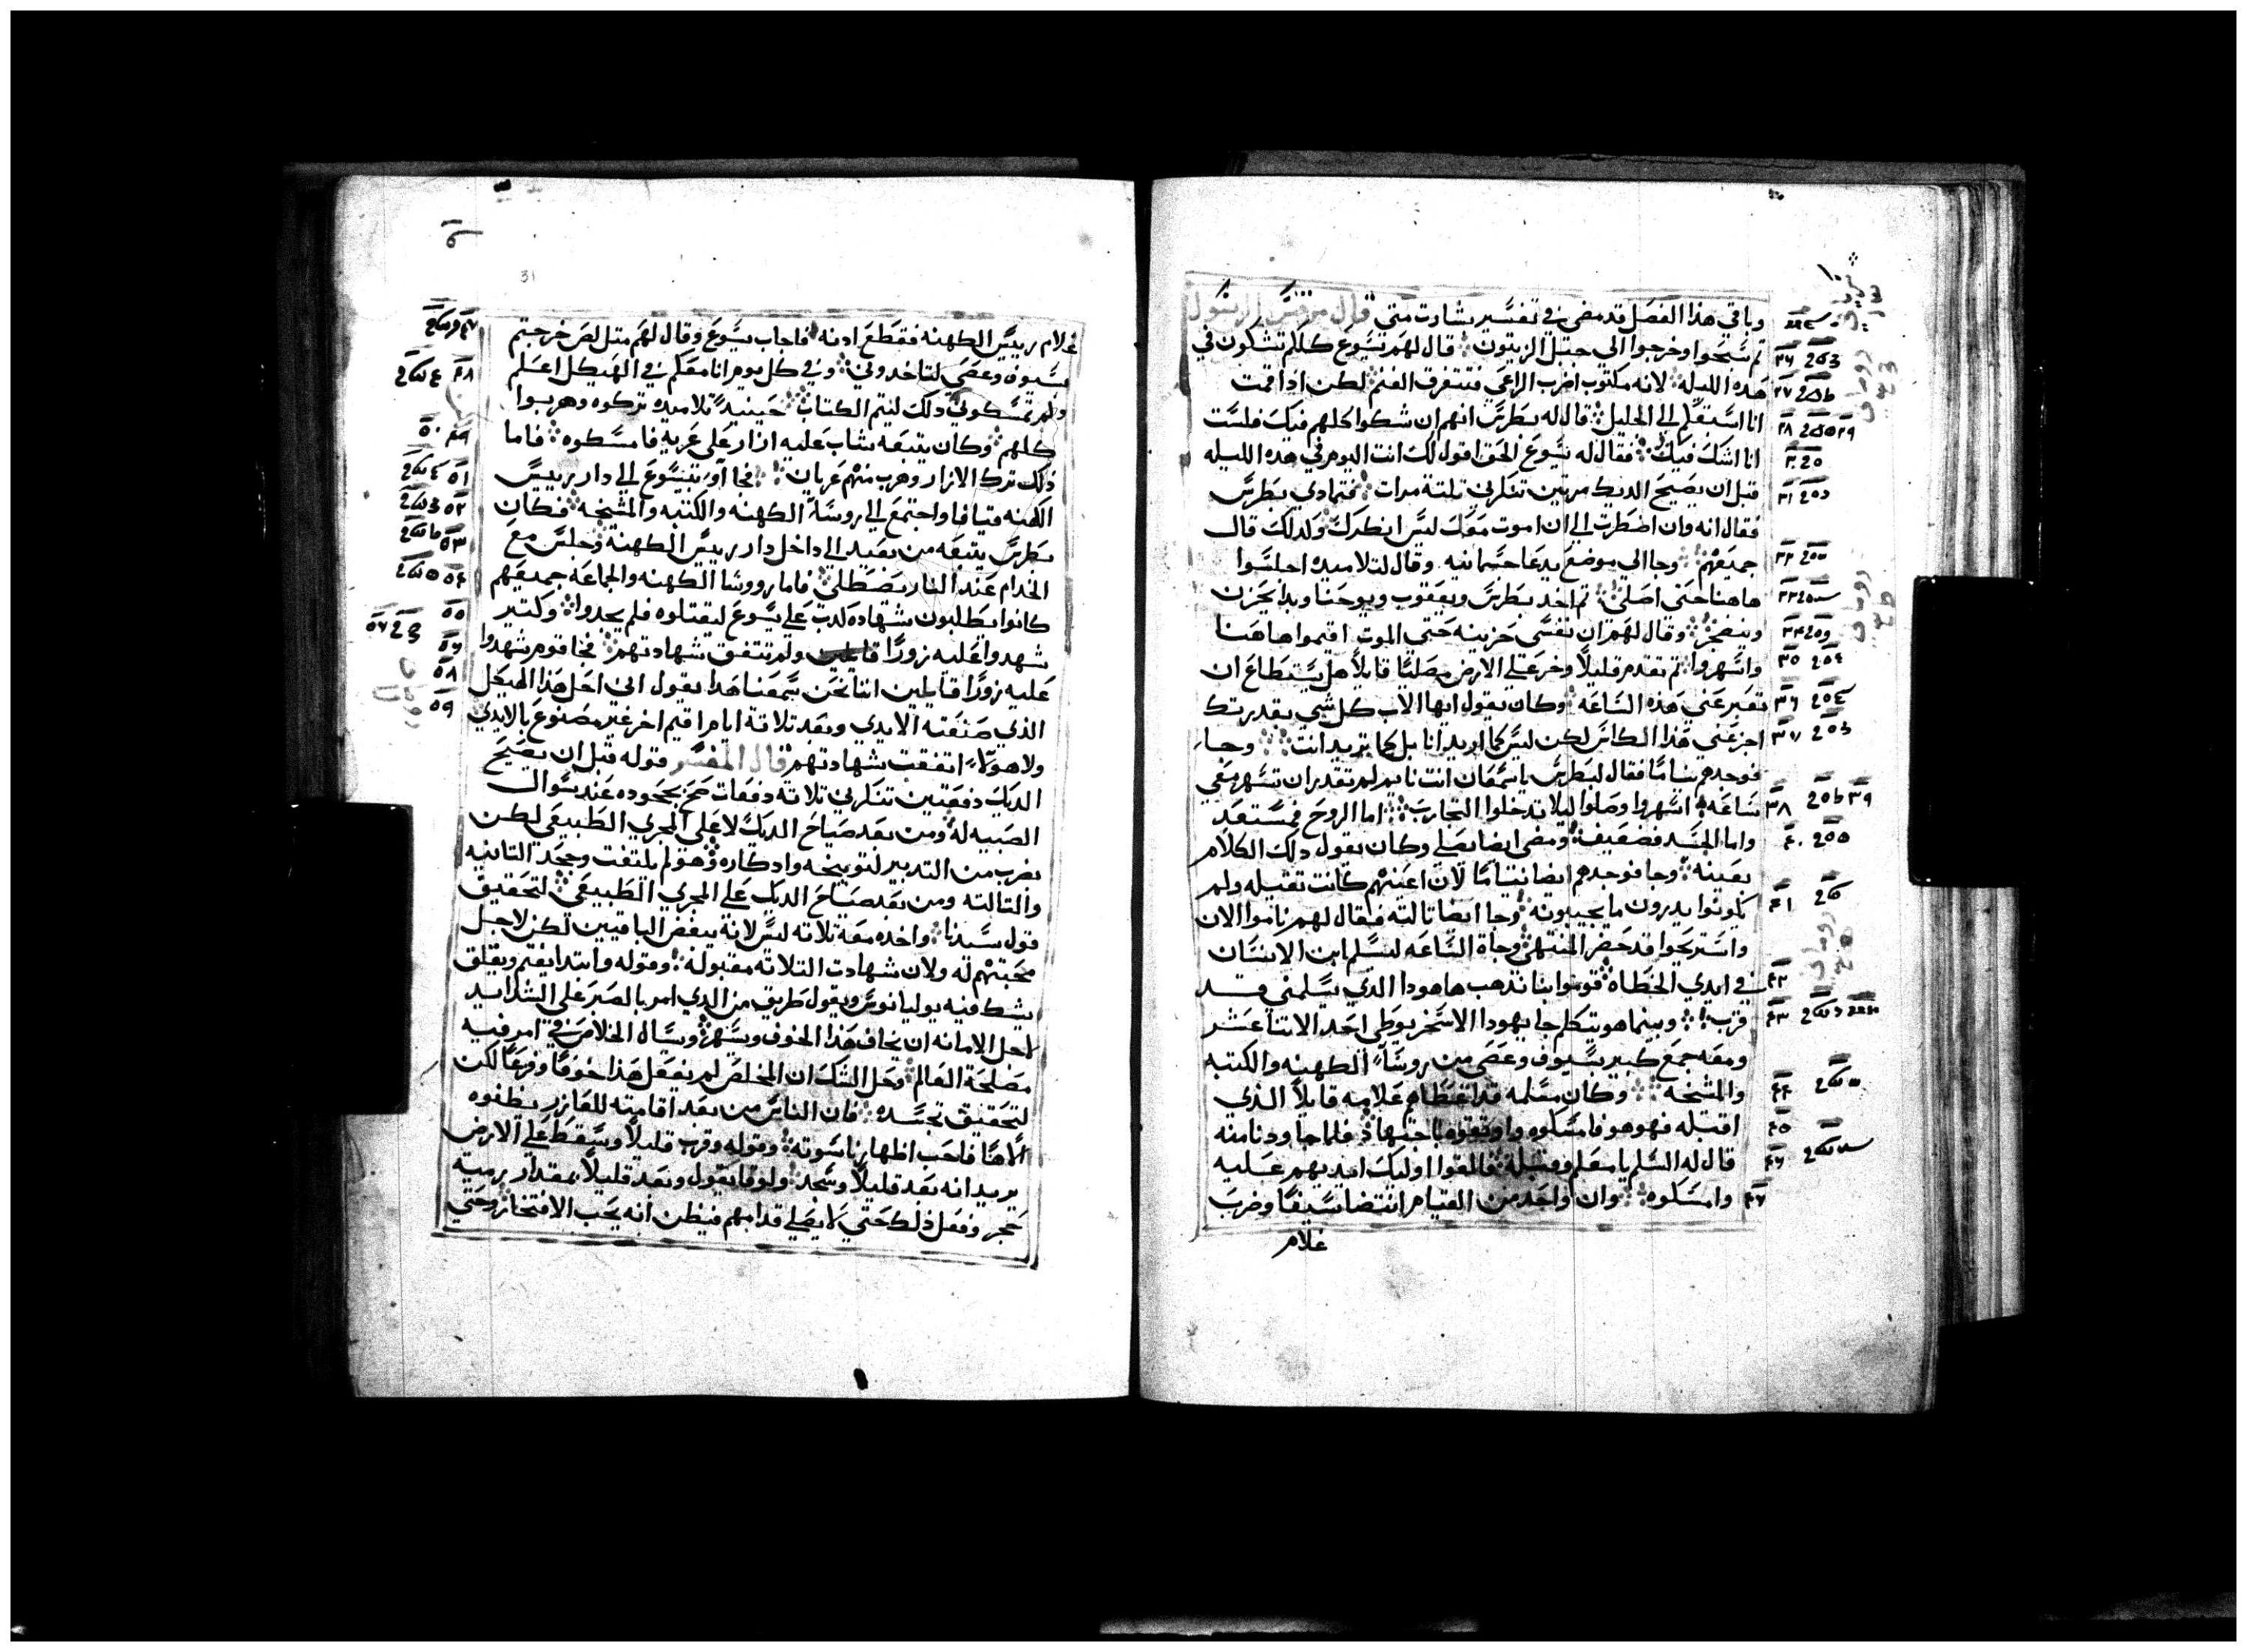 وباقي هذا الفصل قد مضى في تفسير بشارت متي قال مرقس الرسول
ثم سبحوا وخرجوا الى جبل الزيتون قال لهم يسوع كلكم تشكون في
هذه الليله لانه مكتوب اضرب الراعي فتتفرق الغنم لكن اذا قمت
انا اسبقكم الي الجليل قال له بطرس انهم ان شكوا كلهم فيك فلست
انا اشك فيك فقال له يسوع الحق اقول لك انت اليوم في هذه الليله
قبل ان يصيح الديك مرتين تنكرني تلتة مرات فتمادي بطرس
فقال انه وان اضطرت الي ان اموت معك ليس انكرك وكدلك قال
جميعهم وجا الي موضع يدعا جسمانيه وقال لتلاميده اجلسوا
هاهنا حتى اصلي تم اخد بطرس ويعقوب ويوحنا وبدا يحزن
ويضجر وقال لهم ان نفسي حزينه حتي الموت اقيموا هاهنا
واسهروا تم تقدم قليلاً وخر علي الارض مصليًا قايلاً هل يستطاع ان
تعبر عني هذه الساعه وكان يقول ايها الاب كل شي بقدرتك
اجز عني هذا الكاس لكن ليس كما اريد انا بل كما تريد انت وجاء
فوجدهم نيامًا فقال لبطرس ياسمعان انت نايم لم تقدر ان تسهر معي
ساعه اسهروا وصلوا ليلا تدخلوا التجارب اما الروح فمستعد
واما الجسد فضعيف ومضى ايضا يصلي وكان يقول دلك الكلام
بعينه وجا فوجدهم ايضا نيامًا لان اعينهم كانت تقيله ولم
يكونوا يدرون ما يجيبونه وجا ايضا تالته فقال لهم ناموا الان
واستريحوا قد حضر المنتهى وجاة الساعه ليسلم ابن الانسان
في ايدي الخطاه قوموا بنا نذهب هاهودا الدي يسلمني قد
قرب وبينما هو يتكلم جا يهودا الاسخريوطي احد الاتنا عشر
ومعه جمع كبير بسيوف وعصى من روساء الكهنه والكتبه
والمشخه وكان مسلمه قد اعطاهم علامه قايلاً الذي
اقبله فهو هو فامسكوه واوتقوه باجتهاد فلما جا ودنا منه
قال له السلم يا معلم وقبله فالقوا اوليك ايديهم عليه
وامسكوه وان واحد من القيام انتضا سيفًا وضرب
غلام
31
غلام رييس الكهنه فقطع ادنه فاجاب يسوع وقال لهم متل لص خرجتم
بسيوف وعصي لتاخدوني وفي كل يوم انا معكم في الهيكل اعلم
ولم تمسكوني دلك ليتم الكتاب حينيد تلاميده تركوه وهربوا
كلهم وكان يتبعه شاب عليه ازار على عريه فامسكوه فاما
ذلك ترك الازار وهرب منهم عريان فجاآو بيسوع الي دار رييس
الكهنه قيافا واجتمع الي روساء الكهنه والكتبه والمشيخه فكان
بطرس يتبعه من بعيد الي داخل دار رييس الكهنة وجلس مع
الخدام عند النار يصطلي فاما رووسا الكهنه والجماعه جميعهم
كانوا يطلبون شهاده كدب علي يسوع ليقتلوه فلم يجدوا وكتير
شهدوا عليه زورًا ولم تتفق شهادتهم فجا قوم شهدوا
عليه زورًا قايلين اننا نحن سمعنا هدا يقول اني احل هذا الهيكل
الذي صنعته الايدي وبعد تلاتة ايام اقيم اخر غير مصنوع بالايدي
ولا هولاء اتفقت شهادتهم قال المفسر قوله قبل ان يصيح
الديك دفعتين تنكرني تلاته دفعات صح بجحوده عند سوال
الصبيه له ومن بعد صياح الديك لا علي المجري الطبيعي لكن
بضرب من التدبير لتوبيخه وادكاره وهو لم يلتفت وجحد التانيه
والتالته ومن بعد صياح الديك علي المجري الطبيعي لتحقيق
قول سيدنا واخده معه تلاته ليس لانه يبغض الباقيين لكن لاجل
محبتهم له ولان شهادت التلاته مقبولة وقوله وابتدا يغتم ويقلق
يشك فيه يوليانوس ويقول طريق من الدي امر بالصبر علي الشدايد
لاجل الامانه ان يخاف هذا الخوف ويسهر ويسال الخلاص في امر فيه
مصلحة العالم وحل الشك ان المخلص لم يفعل هذا خوفًا وفزعًا لكن
لتحقيق تجسده فان الناس من بعد اقامته للعازر يظنوه
الاهًا فاحب اظهار ناسوته وقوله وقرب قليلاً وسقط علي الارض
يريد انه بعد قليلاً وسجد ولوقا يقول وبعد قليلاً بمقدار رمية
حجر وفعل ذلك حتي لا يصلي قدامهم فيظن انه يحب الافتخار وحتي